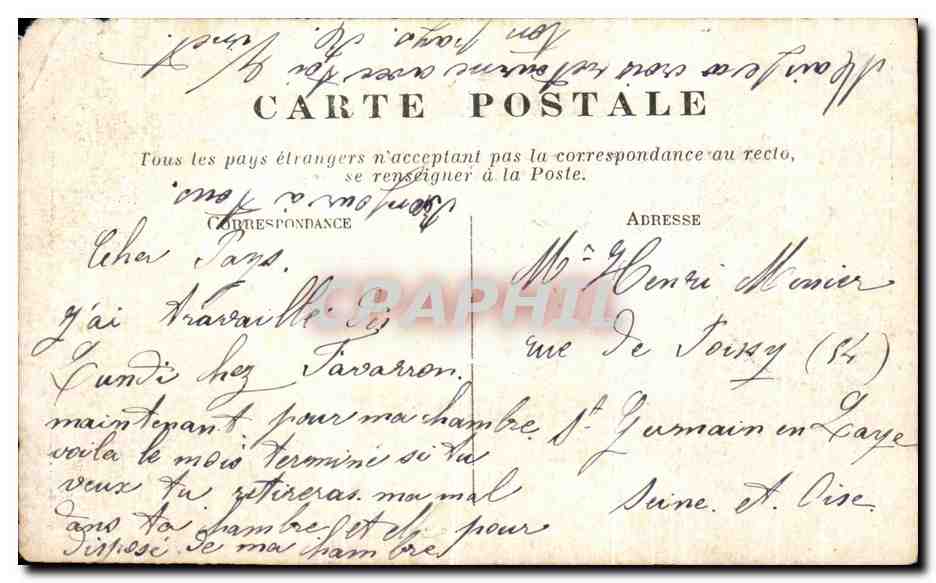 CARTE POSTALE
Tous les pays étrangers n'acceptant pas la correspondance au recto,
se renseigner à la Poste.
CORRESPONDANCE
Cher Pays.
J'ai travaillé
Lundi chez Favarron.
maintenant pour ma chambre
voila le mois terminé si tu
veux tu retireras ma mal
dans ta chambre et pour
disposé de ma chambre
Bonjour à tous.
Mais je crois retourne avec toi
ton pays.
ADRESSE
Mr Henri Monier
rue de Poissy (54)
St Germain en Laye
Seine et Oise
CPAPHIL